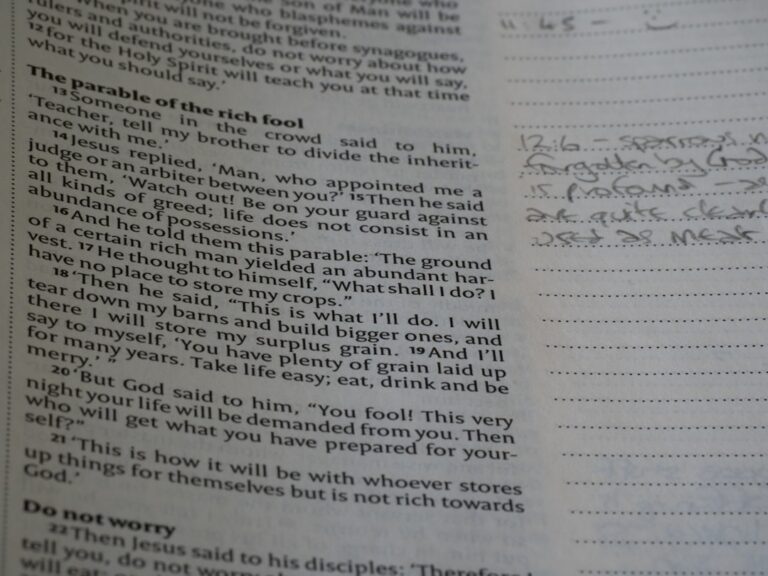 Son of Man will be
who blasphemes against
Spirit will not be forgiven.
When you are brought before synagogues,
rulers and authorities, do not worry about how
you will defend yourselves or what you will say,
12 for the Holy Spirit will teach you at that time
what you should say.’
The parable of the rich fool
13 Someone in the crowd said to him,
‘Teacher, tell my brother to divide the inherit-
ance with me.’
14 Jesus replied, ‘Man, who appointed me a
judge or an arbiter between you?’ 15 Then he said
to them, ‘Watch out! Be on your guard against
all kinds of greed; life does not consist in an
abundance of possessions.’
16 And he told them this parable: ‘The ground
of a certain rich man yielded an abundant har-
vest. 17 He thought to himself, “What shall I do? I
have no place to store my crops.”
18 ‘Then he said, “This is what I’ll do. I will
tear down my barns and build bigger ones, and
there I will store my surplus grain. 19 And I’ll
say to myself, ‘You have plenty of grain laid up
for many years. Take life easy; eat, drink and be
merry.’ ”
20 ‘But God said to him, “You fool! This very
night your life will be demanded from you. Then
who will get what you have prepared for your-
self?”
21 ‘This is how it will be with whoever stores
up things for themselves but is not rich towards
God.’
Do not worry
22 Then Jesus said to his disciples: ‘Therefore I
tell you, do not worry
will eat;
11:45 –
12:6 – sparrows
forgotten by God
is profound –
are quite
used as meat